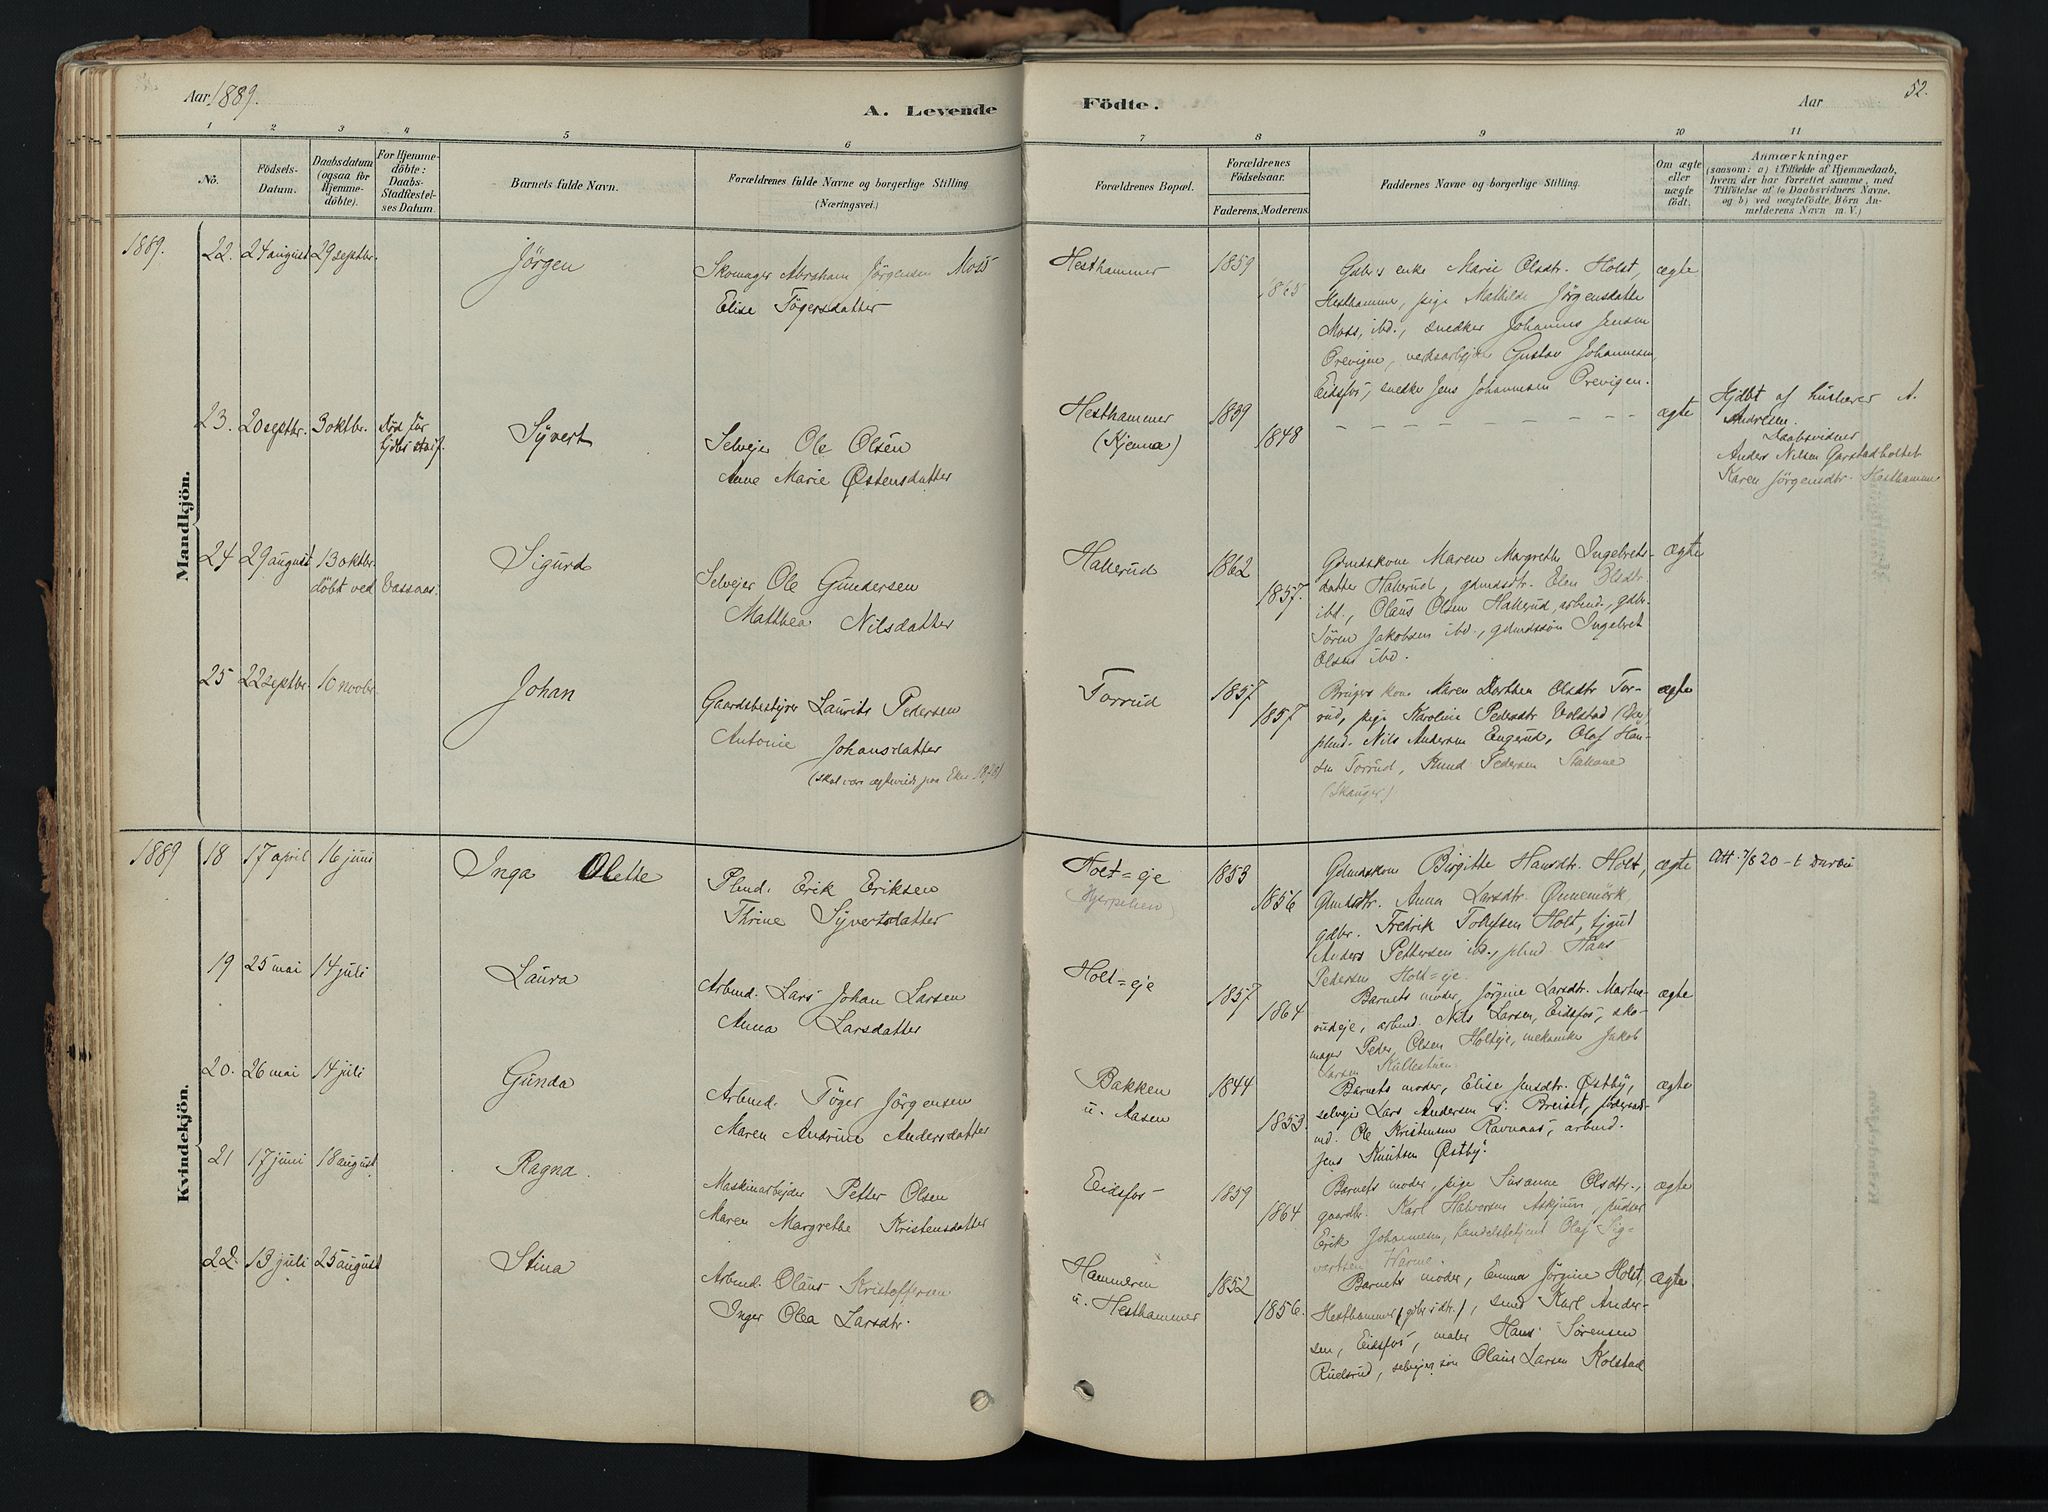 Aar 1889.
A. Levende Födte.
Aar
52.
1 2 3 4 5 6 7 8 9 10 11
No.
Födsels-Datum.
Daabsdatum (ogsaa for Hjemme-döbte).
For Hjemme-döbte: Daabs-Stadfæstel-ses Datum.
Barnets fulde Navn.
Forældrenes fulde Navne og borgerlige Stilling (Næringsvei.)
Forældrenes Bopæl.
Forældrenes Födselsaar.
Faderens. Moderens.
Faddernes Navne og borgerlige Stilling.
Om ægte eller uægte födt.
Anmærkninger
(saasom: a) i Tilfælde af Hjemmedaab,
hvem der har forrettet samme, med
Tilföielse af to Daabsvidners Navne.
og b) ved uægtefödte Börn An-
melderens Navn m. V.)
Mandkjön.
1889. 22. 24 august 29 septbr. Jörgen
Skomager Abraham Jörgensen Moss
Elise Tögersdatter
Hesthammer 1859 1865
Gdbrs enke Marie Olsdtr. Holst,
Hesthamme, pige Mathilde Jörgensdatte
Moss, ibd., snedker Johannes Jensen
Orevigen, verksarbejder Gustav Johannesen,
Eidsfos, snedke Jens Johannesen Orevigen.
ægte
23. 20 septbr. 3 oktbr. Död før Sÿvert
Selvejer Ole Olsen
Anne Marie Østensdatter
Hesthammer (Kjenna) 1839 1848
ægte
Hjdbt af huslærer A.
Andresen.
Daabsvidner
Anders Nilsen Garstadholtet
Karen Jörgensdtr. Hesthamme
24 29 august 13 oktbr. döbt ved Vassaas. Sigurd
Selvejer Ole Gundersen
Matthea Nilsdatter
Hallerud 1862 1857.
Gdmdskone Maren Margrethe Ingebrets-
datter Hallerud, gdmdsdtr. Elen Olsdtr.
ibd., Olaus Olsen Hallerud, arbmd., gdbr.
Sören Jakobsen ibd., gdmdssön Ingebret
Olsen ibd.
ægte
25 22 septbr. 10 novbr. Johan
Gaardsbestyrer Laurits Pedersen
Antonie Johansdatter
Torrud 1857 1857
Brugers kone Maren Dorthea Olsdtr Tor-
rud, pige Karoline Pedersdtr Volstad (Eker)
plmd. Nils Andersen Engerud, Olaf Han-
sen Torrud, Knud Pedersen
(Skauger)
ægte
Kvindekjön.
1889 18 17 april 16 juni Inga Olette
Plmd. Erik Eriksen
Thrine Sÿvertsdatter
Holt=eje 1853 1856
Gdmdskone Birgitte Hansdtr. Holt,
Gdmdsdtr. Anna Larsdtr. Ønnemörk,
gdbr. Fredrik Tollefsen Holt, tjgut
Anders Pettersen ibd., plmd Hans
Pedersen Holt=eje.
ægte
Att. 7/8 20
19 25 mai 14 juli Laura
Arbmd. Lars Johan Larsen
Anna Larsdatter
Holt=eje 1857 1864
Barnets moder, Jörgine Larsdtr. Martins-
rudeje, arbmd. Nils Larsen, Eidsfos, sko-
mager Peder Olsen Holteje, mekaniker Jakob
Larsen Kullestuen.
ægte
20. 26 mai 14 juli Gunda
Arbmd. Töger Jörgensen
Maren Andrine Andersdatter
Bakken u. Aasen 1844 1853.
Barnets moder, Elise Jensdtr. Østbÿ,
selvejer Lars Andersen s: Breiset, föderaads-
md. Ole Kristensen Ravnaas, arbmd.
Jens Knutsen Østbÿ.
ægte
21 17 juni 18 august Ragna.
Maskinarbejder Petter Olsen
Maren Margrethe Kristensdatter
Eidsfos 1859 1864
Barnets moder, pige Susanne Olsdtr.,
gaardbr. Karl Halvorsen Askjum, pudser
Erik Johannesen, handelsbetjent Olaf Sig-
vartsen
ægte
22. 13 juli 25 august Stina
Arbmd. Olaus Kristoffersen
Inger Olea Larsdtr.
Hammeren u. Hesthammer 1852 1856.
Barnets moder, Emma Jörgine Holst,
Hesthammer (gdbrsdtr.), smed Karl Ander-
sen, Eidsfos, maler Hans Sörensen
Ruelsrud, selvejersön Olaus Larsen Kolstad
ægte